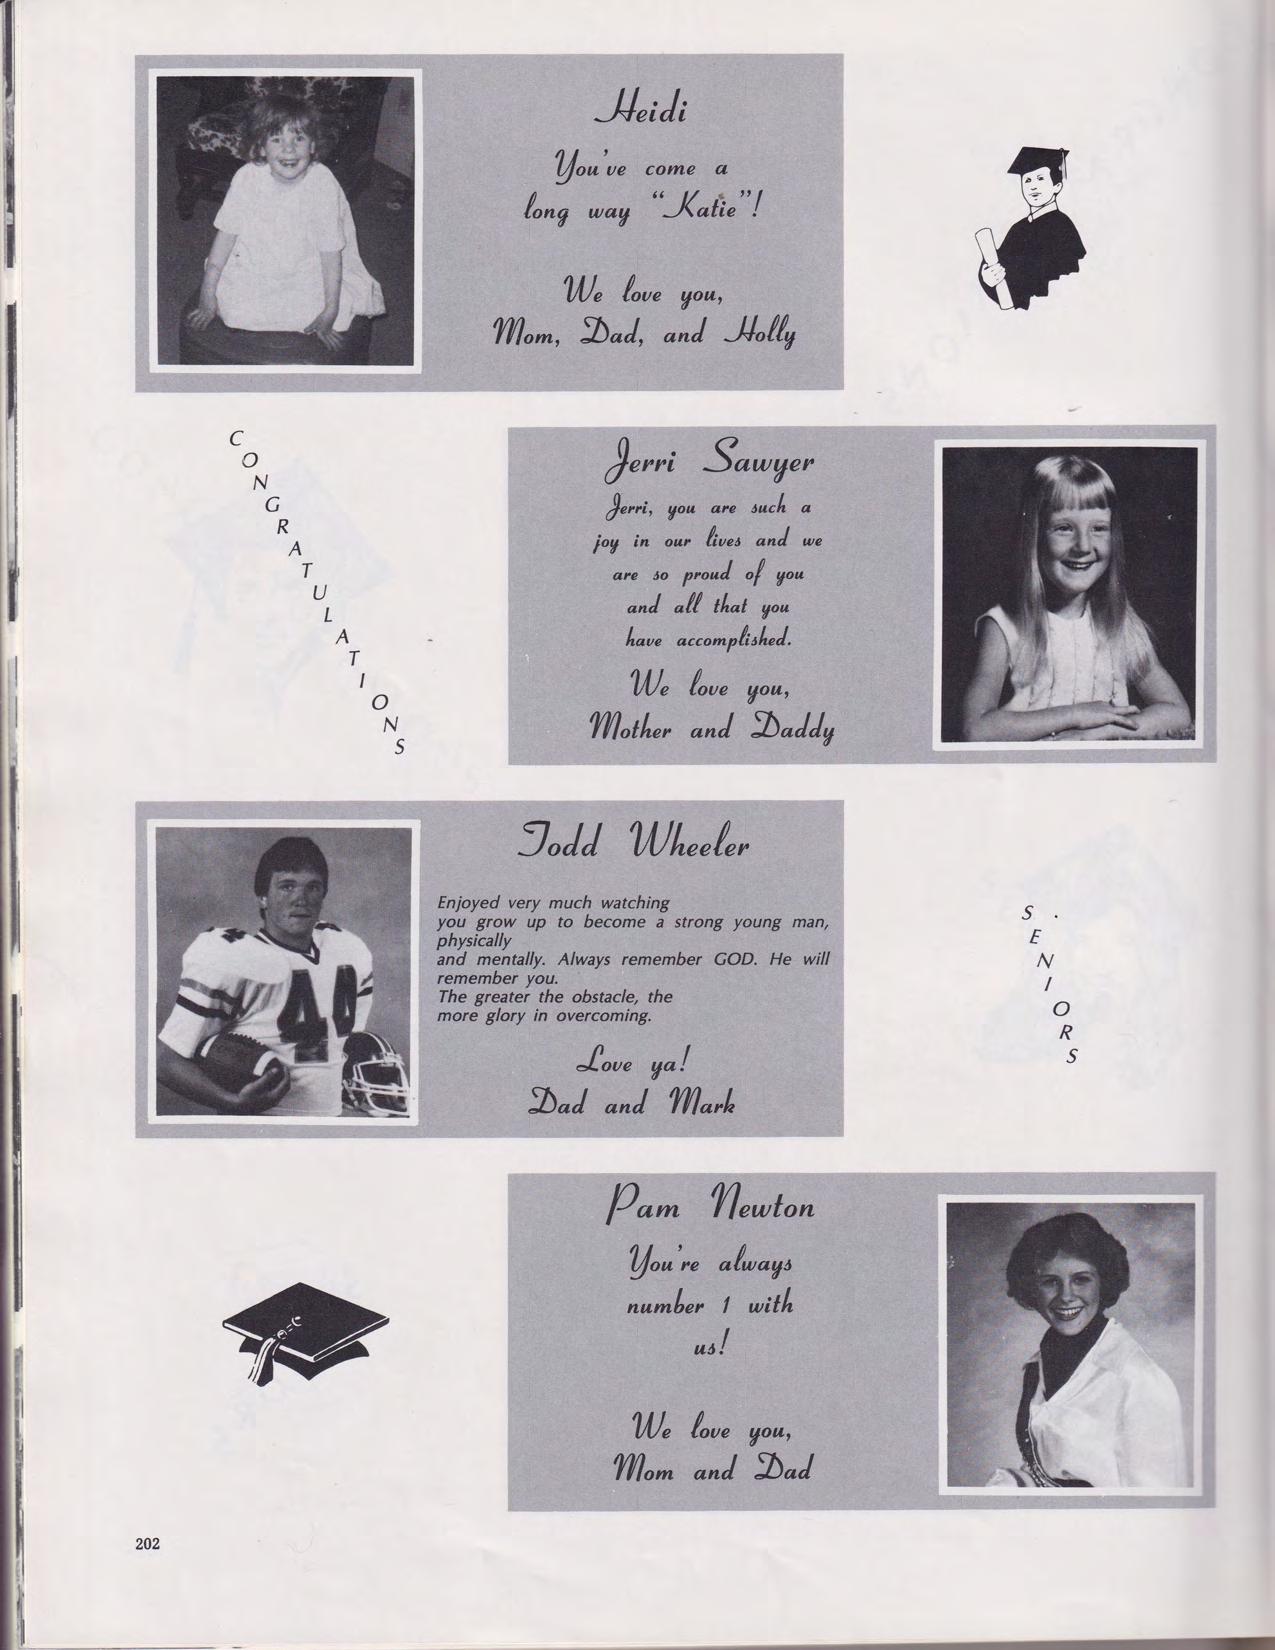 Heidi
You've come a
long way "Katie"!
We love you,
Mom, Dad, and Holly
CONGRATULATIONS
Jerri Sawyer
Jerri, you are such a
joy in our lives and we
are so proud of you
and all that you
have accomplished.
We love you,
Mother and Daddy
Todd Wheeler
Enjoyed very much watching
you grow up to become a strong young man,
physically
and mentally. Always remember GOD. He will
remember you.
The greater the obstacle, the
more glory in overcoming.
Love ya!
Dad and Mark
44
SENIORS
Pam Newton
You're always
number 1 with
us!
We love you,
Mom and Dad
202